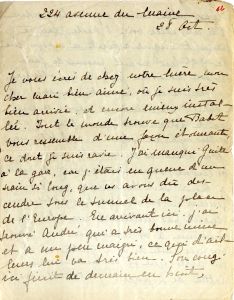 224 avenue du Maine
28 Oct.
Je vous écris de chez votre mère, mon
cher mari bien aimé, où je suis très
bien arrivée, et encore mieux instal-
lée. Tout le monde trouve que
vous ressemble d'une façon étonnante,
ce dont je suis ravie. J'ai manqué
à la gare, car j'étais en queue d'un
train si long, que nous avons dû des-
cendre sous le tunnel de la place
de l'Europe. En arrivant ici, j'ai
trouvé André qui a très bonne mine
et a un peu maigri, ce qui d'ail-
leurs lui va très bien. Son congé
ici finit de demain en huit,